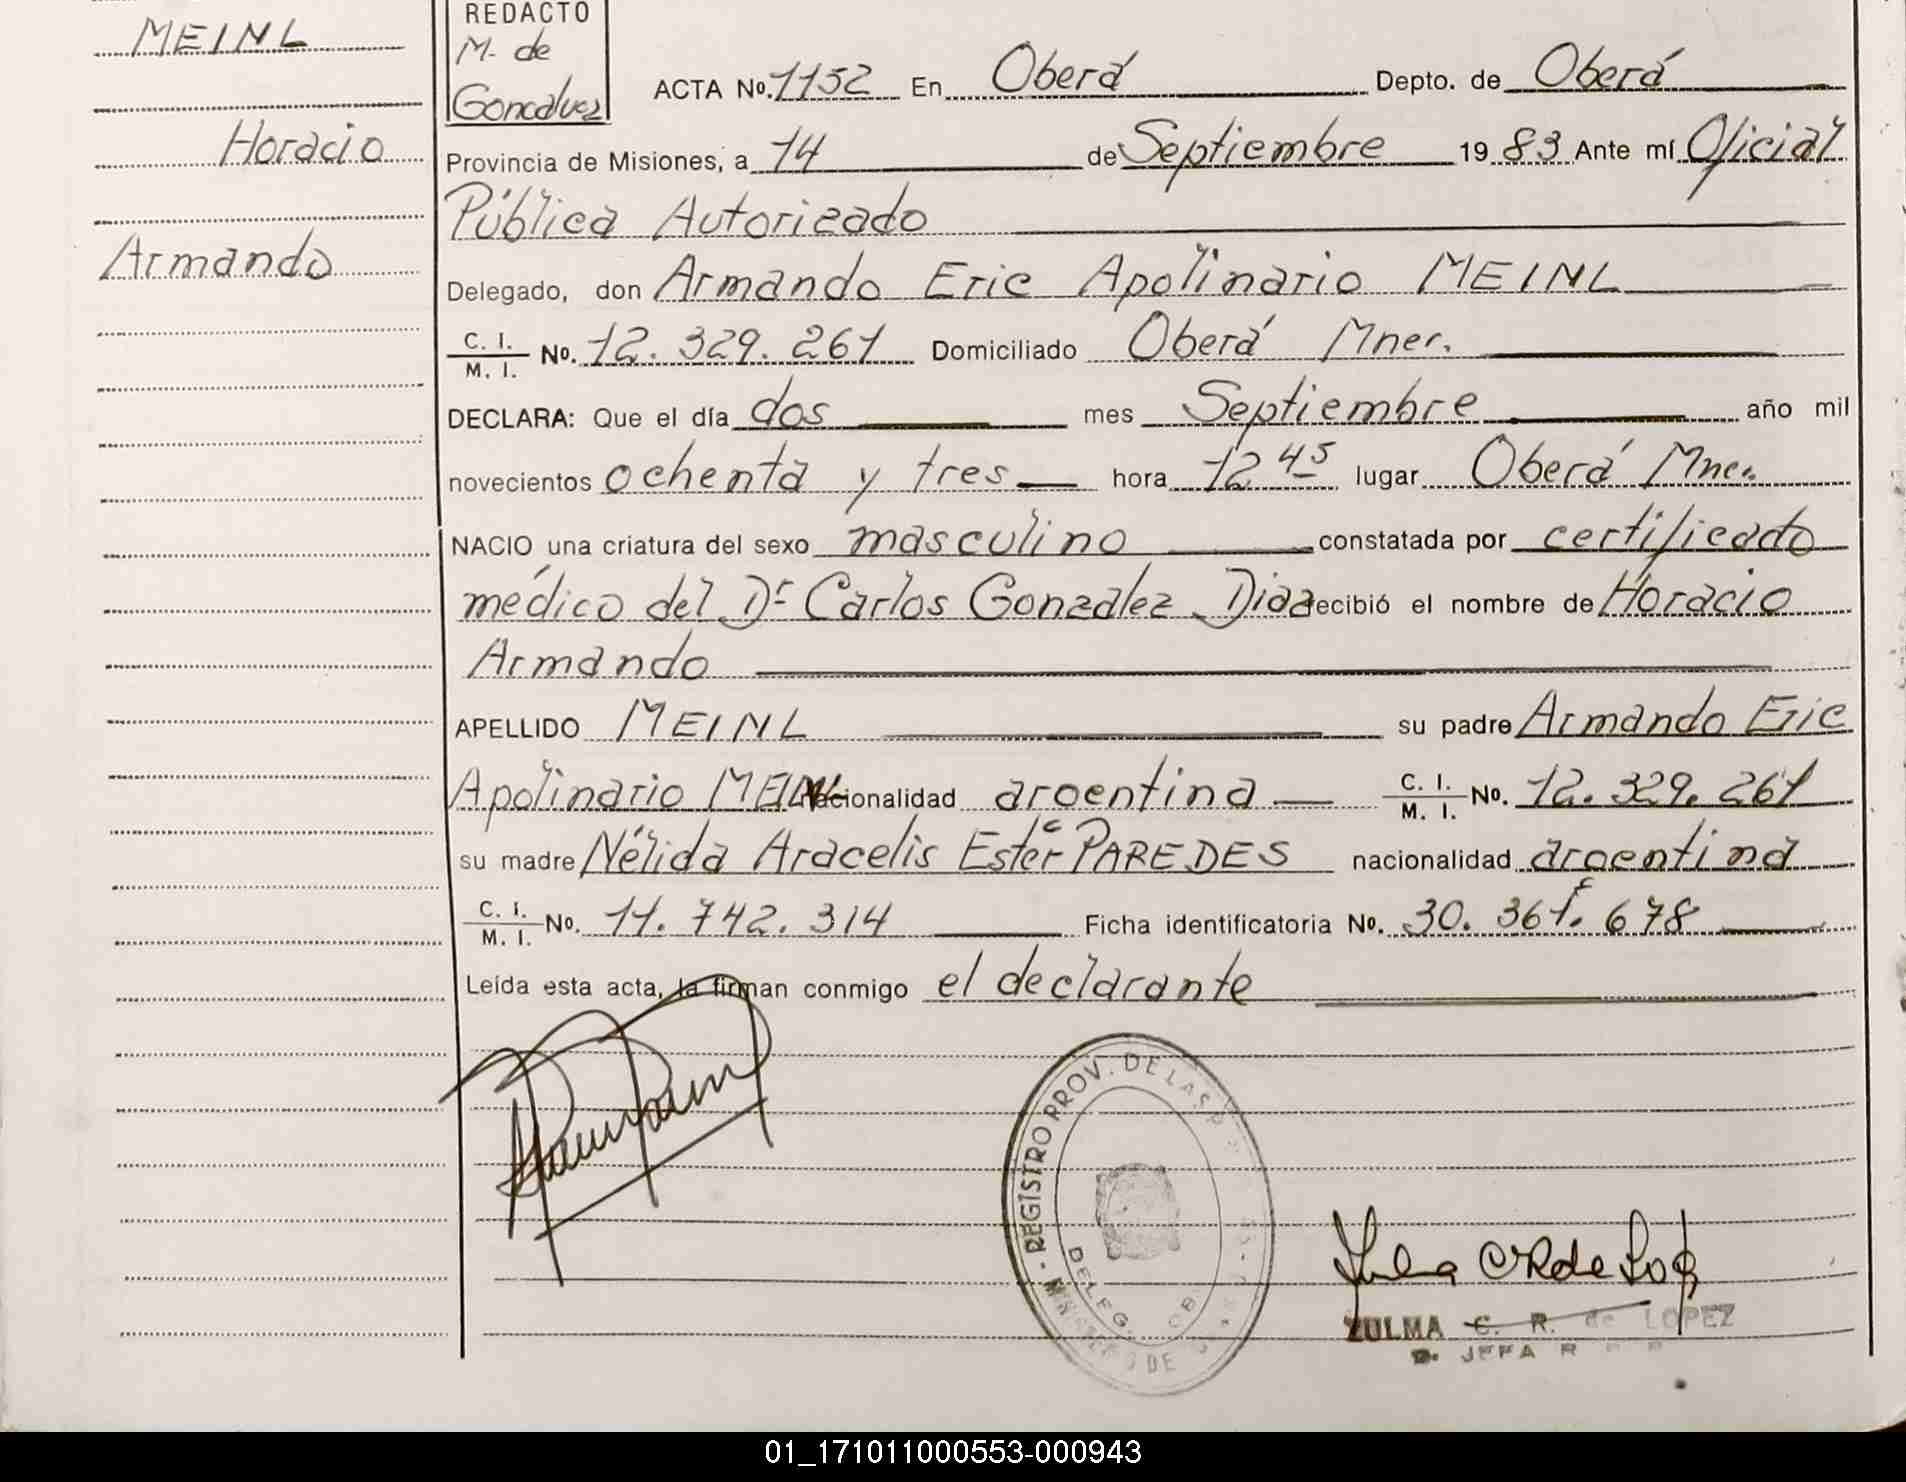 MEINL
Horacio
Armando
REDACTO
M. de
Goncalvez
ACTA No. 1152 En Oberá Depto. de Oberá
Provincia de Misiones, a 14 de Septiembre 1983 Ante mí Oficial
Pública Autorizado
Delegado, don Armando Eric Apolinario MEINL
C. I. / M. I. No. 12.329.261 Domiciliado Oberá Mnes.
DECLARA: Que el día dos mes Septiembre año mil
novecientos ochenta y tres hora 12 45 lugar Oberá Mnes.
NACIO una criatura del sexo masculino constatada por certificado
médico del Dr Carlos Gonzalez Diaz recibió el nombre de Horacio
Armando
APELLIDO MEINL su padre Armando Eric
Apolinario MEINL nacionalidad argentina C. I. / M. I. No. 12.329.261
su madre Nélida Aracelis Ester PAREDES nacionalidad argentina
C. I. / M. I. No. 11.742.314 Ficha identificatoria No. 30.361.678
Leída esta acta, la firman conmigo el declarante
REGISTRO PROV. DE LAS
ZULMA C. R. de LOPEZ
JEFA
01_171011000553-000943